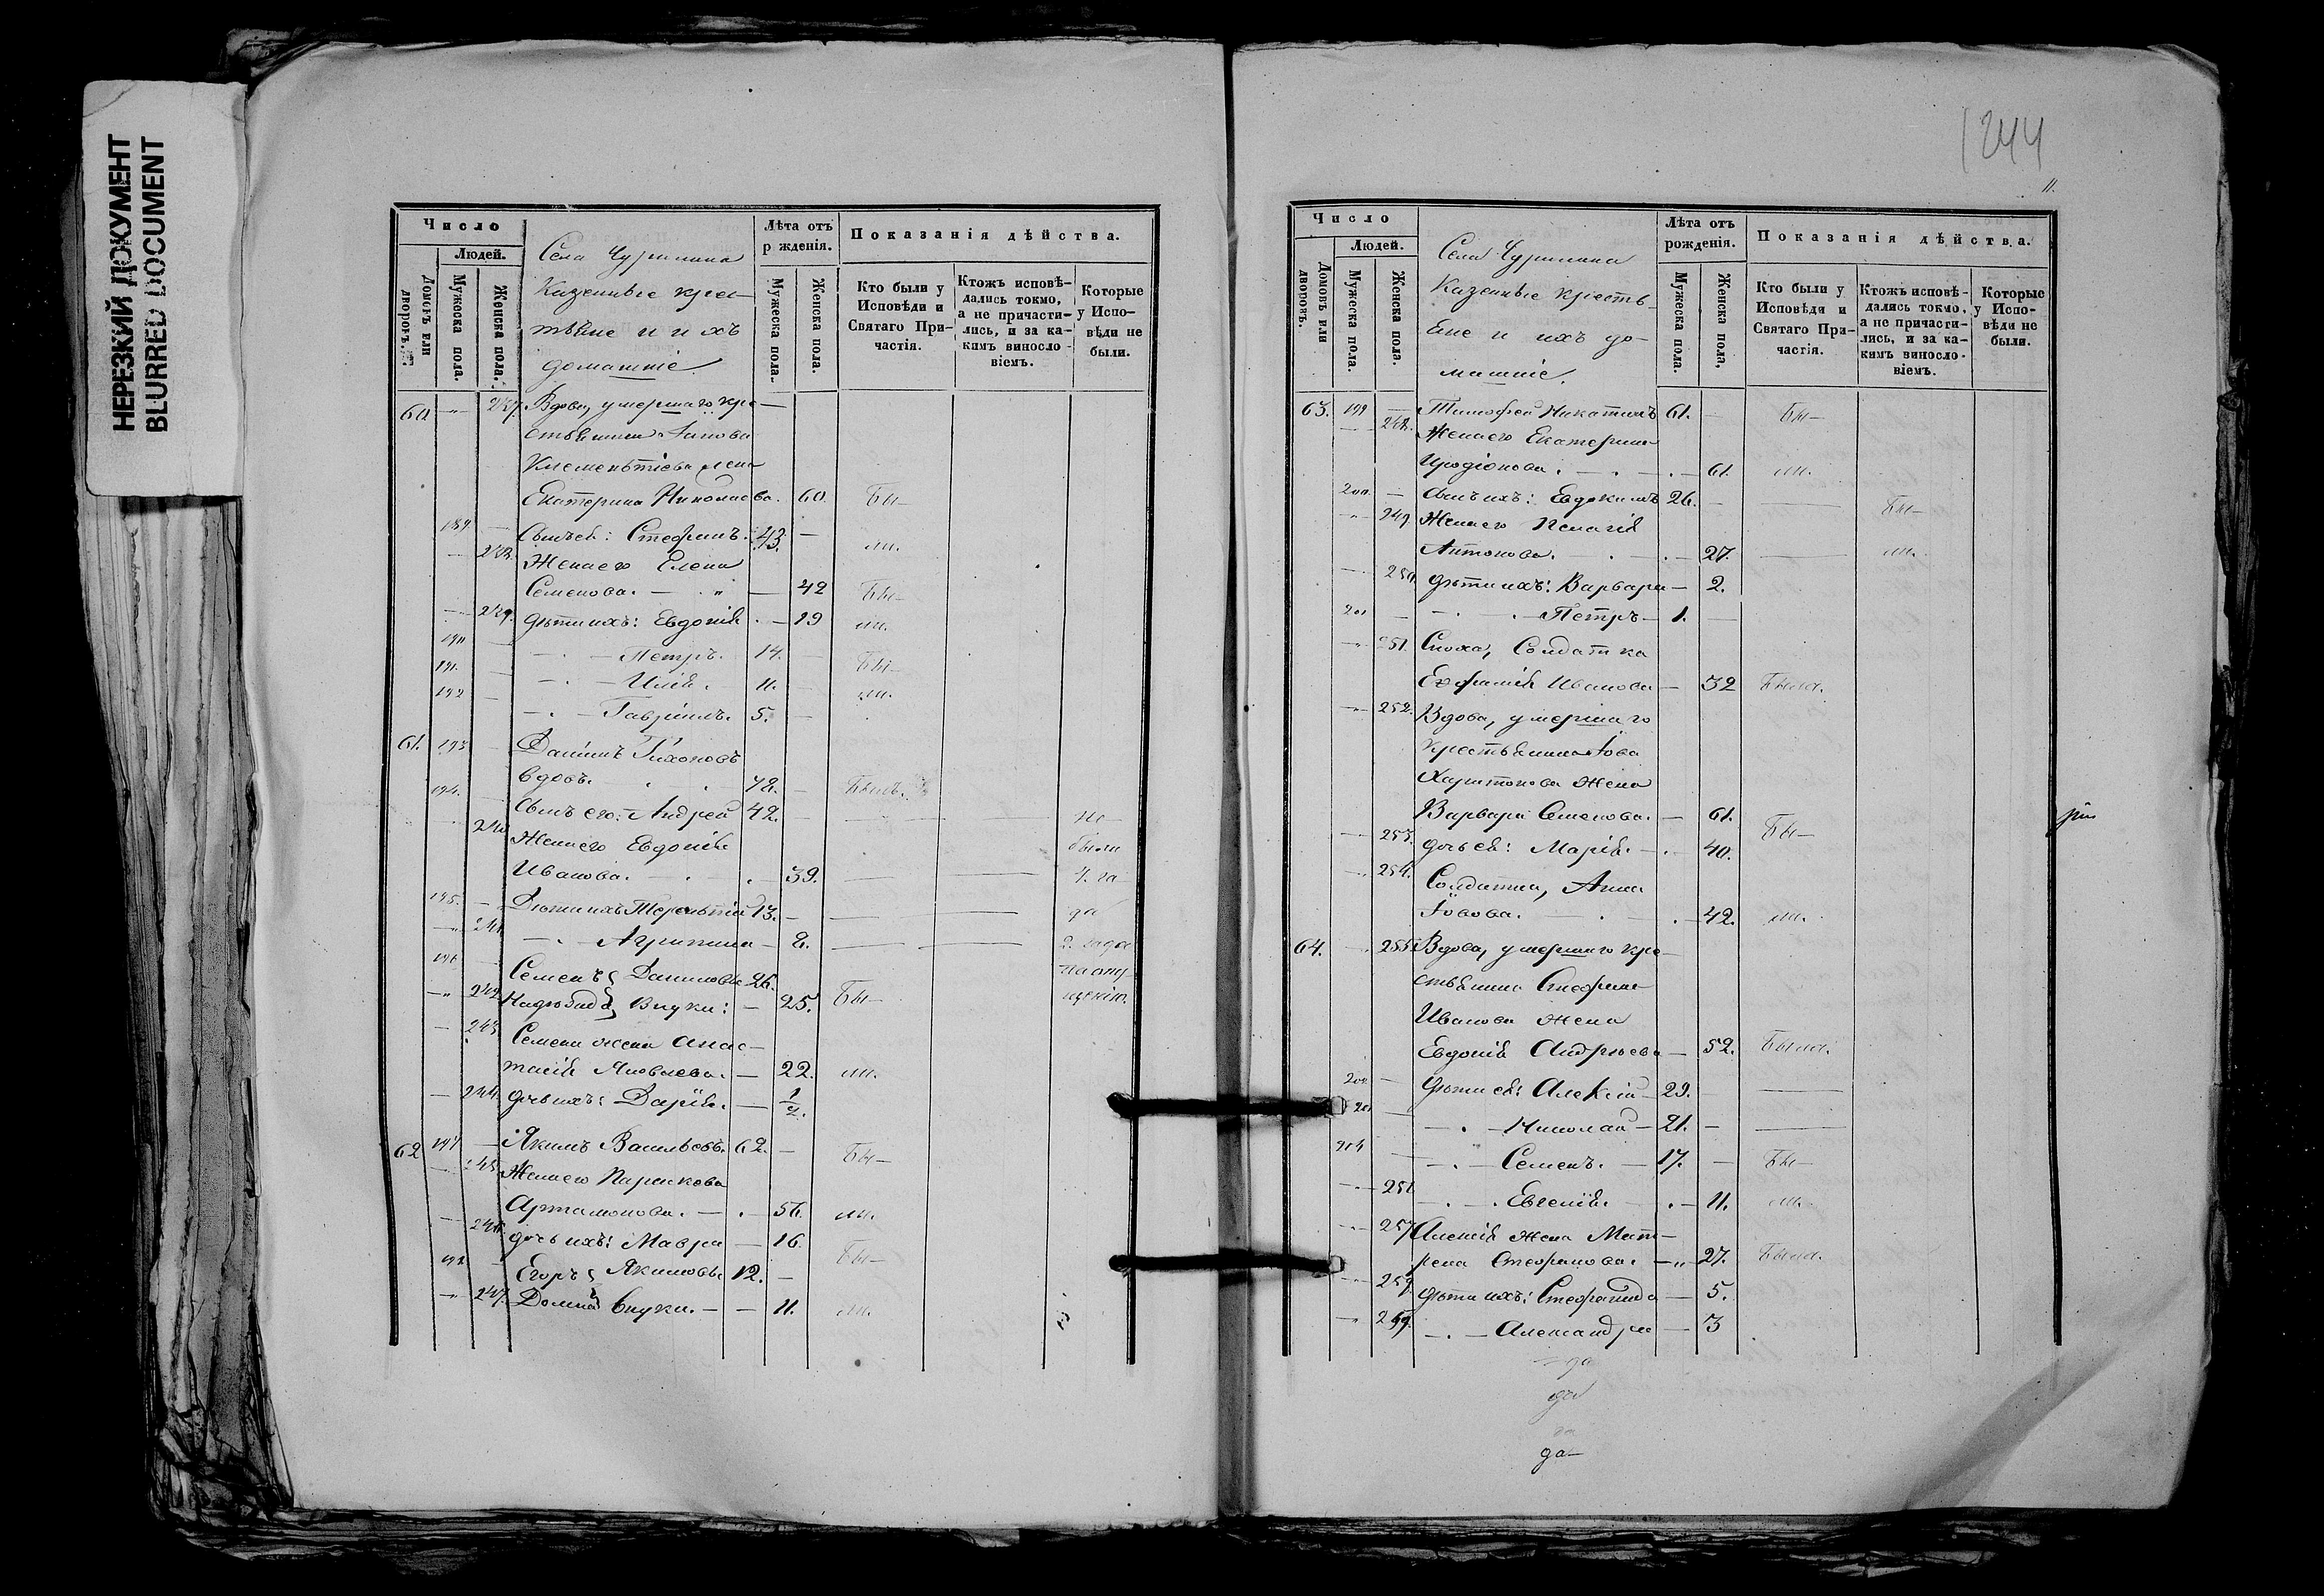 НЕРЕЗКИЙ ДОКУМЕНТ
BLURRED DOCUMENT
Число
Людей.
Домовъ или дворовъ.
Мужеска пола.
Женска пола.
Села Чурилина
Казенные крес-
тьяне и ихъ
домашніе.
Лѣта отъ
р жденія.
Мужеска пола.
Женска пола.
Показанія дѣйства.
Кто были у
Исповѣди и
Святаго При-
частія.
Ктожъ исповѣ-
дались токмо,
а не причасти-
лись, и за ка-
кимъ виносло-
віемъ.
Которые
у Испо-
вѣди не
были.
60. — 237. Вдова, умершаго кре-
стьянина
Клементіева жена
Екатерина Николаева. 60. Бы-
189. — Сынъ ея: Стефанъ. 43. — ли.
— 238. Жена его Елена
Семенова. — 42 Бы-
— 239. Дѣти ихъ: Евдокія. — 19 ли.
190 — Петръ. 14. — Бы-
191. — Илія. 11. — ли.
192 — Гавріилъ. 5. —
61. 193 — Даніилъ Тихоновъ
вдовъ. 78. — Былъ.
194. — Сынъ его: Андрей 42. — не
— 240 Жена его Евдокія были
Иванова. — 39.
195. — Дѣти ихъ Терентій 13. —
— 241 — Агрипина — 8.
196 — Семенъ Даниловы 26.
— 242 Надежда внуки: — 25. Бы-
— 243 Семена жена Анас-
тасія Яковлева. — 22. ли.
— 244. Дочь ихъ: Дарія. — 1/2.
62 197 — Якимъ Васильевъ. 62. — Бы-
— 245. Жена его Параскева
Артамонова. — 56. ли.
— 246. Дочь ихъ: Мавра — 16. Бы-
198 — Егоръ Якимовы 12. —
— 247. Домна внуки. — 11. ли.
1244
11.
Число
Людей.
Домовъ или дворовъ.
Мужеска пола.
Женска пола.
Села Чурилина
Казенные кресть-
яне и ихъ до-
машніе.
Лѣта отъ
рожденія.
Мужеска пола.
Женска пола.
Показанія дѣйства.
Кто были у
Исповѣди и
Святаго При-
частія.
Ктожъ исповѣ-
дались токмо,
а не причасти-
лись, и за ка-
кимъ виносло-
віемъ.
Которые
у Испо-
вѣди не
были.
63. 199 — Тимофей 61. — Бы-
— 248. Жена его Екатерина
Иродіонова. — 61. ли.
200. — Сынъ ихъ: Евдокимъ 26. — Бы-
— 249 Жена его Пелагія
Антонова. — 27. ли.
— 250. Дѣти ихъ: Варвара — 2.
201 — Петръ — 1. —
— 251. Сноха, Солдатка
Ефимія Иванова — 32 Была.
— 252. Вдова, умершаго
крестьянина Іова
Харитонова жена
Варвара Семенова. — 61.
Бы-
— 253. Дочь ея: Марія. — 40.
— 254. Солдатка, Анна
Іовова. — 42. ли.
64. — 255. Вдова, умершаго кре-
стьянина Стефана
Иванова жена
Евдокія Андреева — 52. Была.
202 — Дѣти ея: Алексій — 29. —
203 — Николай — 21. —
204 — Семенъ. — 17. — Бы-
— 256 — Евгенія. — 11. ли.
— 257 Алексія жена Мат-
рена Стефанова. — 27. Была.
— 258. Дѣти ихъ: Стефанида — 5.
— 259. — Александра — 3
да
да
да-